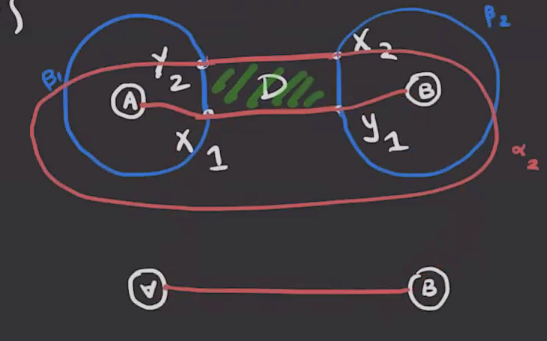 β₂
Y₂ X₂
β₁ D
A B
X₁ Y₁
α₂
∀ B